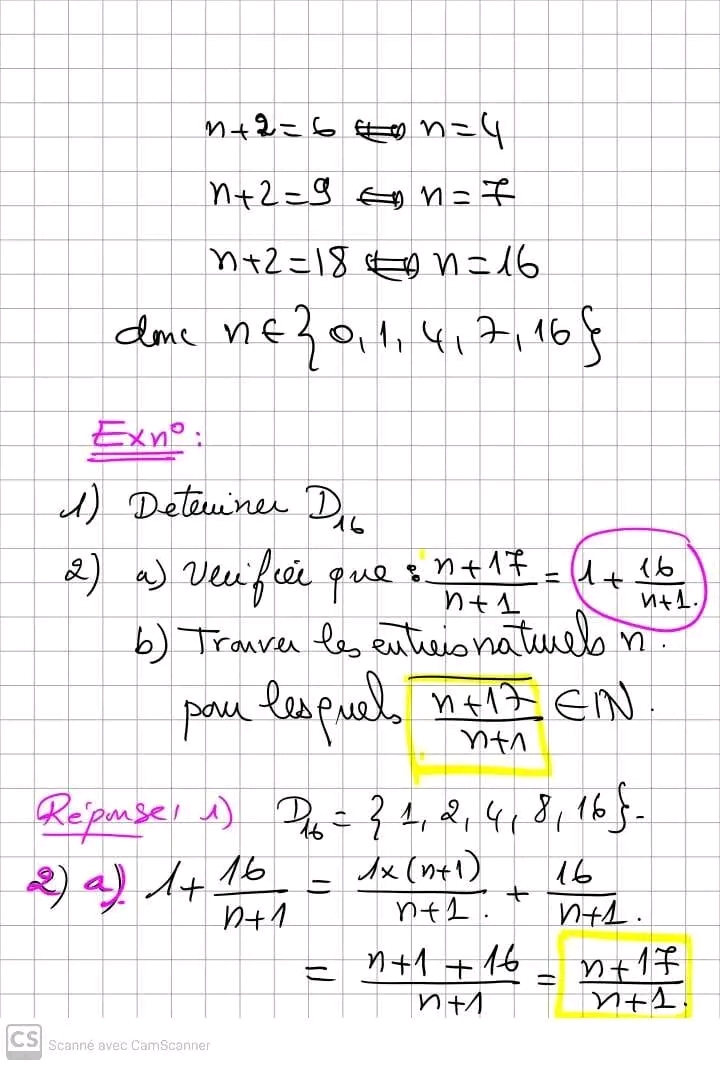 n+2=6 ⟺ n=4
n+2=9 ⟺ n=7
n+2=18 ⟺ n=16
donc n∈{0,1,4,7,16}
Exn°:
1) Determiner D₁₆
2) a) Verifier que : (n+17)/(n+1) = 1 + 16/(n+1).
b) Trouver les entiers naturels n.
pour lesquels (n+17)/(n+1) ∈ IN.
Réponse, 1) D₁₆ = {1, 2, 4, 8, 16}-
2) a) 1 + 16/(n+1) = 1×(n+1)/(n+1). + 16/(n+1).
= (n+1+16)/(n+1) = (n+17)/(n+1).
CS Scanné avec CamScanner